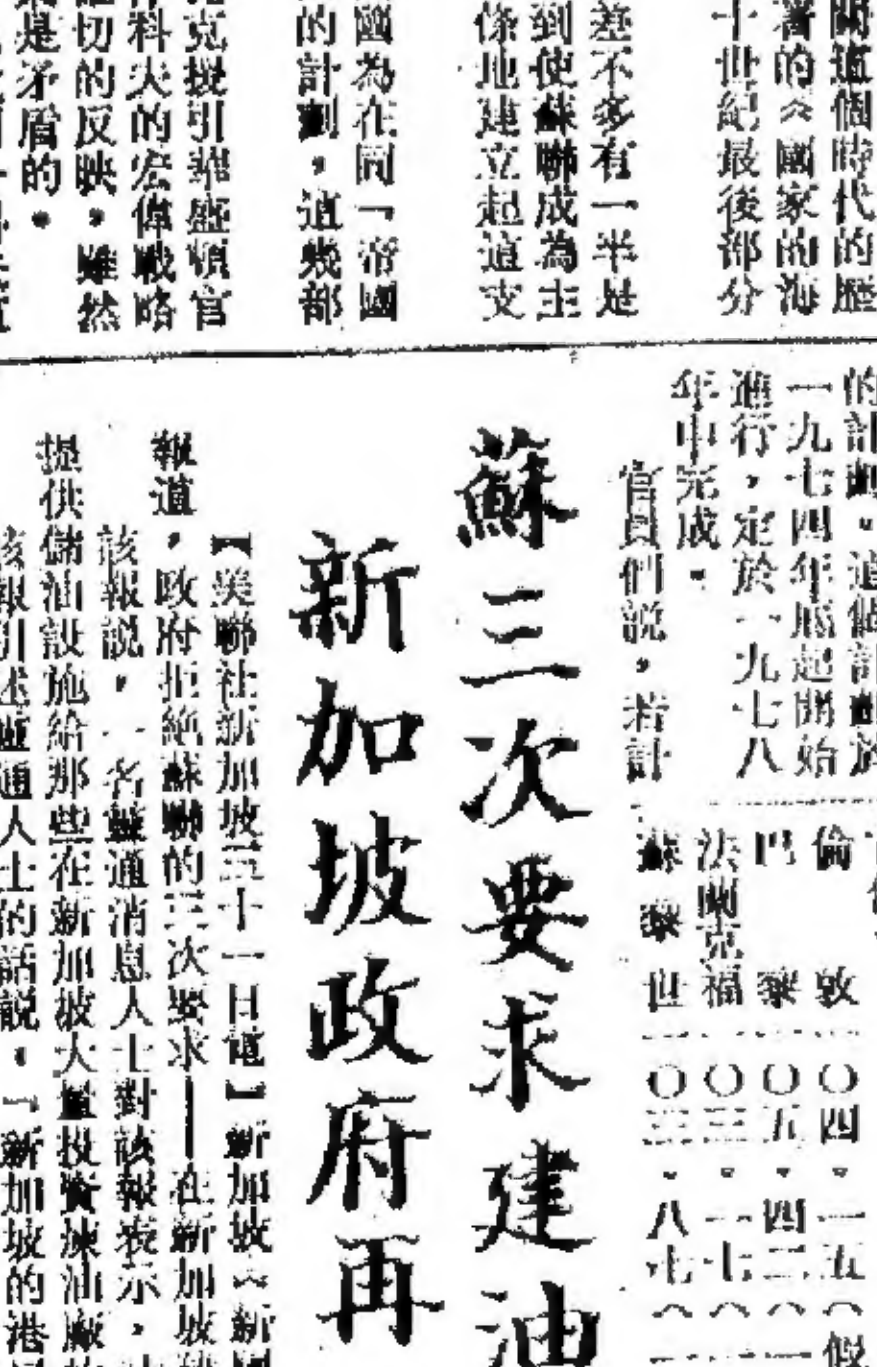 關這個時代的歷
著的《國家的海
十世紀最後部分
差不多有一半是
到使蘇聯成為主
係地建立起這支
國為在同「帝國
的計劃，這幾部
克援引華盛頓官
科夫的宏偉戰略
切的反映。雖然
是矛盾的。
的計劃。這個計劃於
一九七四年底起開始
進行，定於一九七八
年中完成。
官員們説，若計
倫敦 一〇四・一五（似
巴黎 一〇五・四二（一
法蘭克福 一〇三・一七（一
蘇黎世 一〇三・八七（一
蘇三次要求建油
新加坡政府再
【美聯社新加坡三十一日電】新加坡《新國
報道，政府拒絶蘇聯的三次要求——在新加坡建
該報説，一名靈通消息人士對該報表示，
提供儲油設施給那些在新加坡大量投資煉油廠的
該報引述靈通人士的話説，「新加坡的港